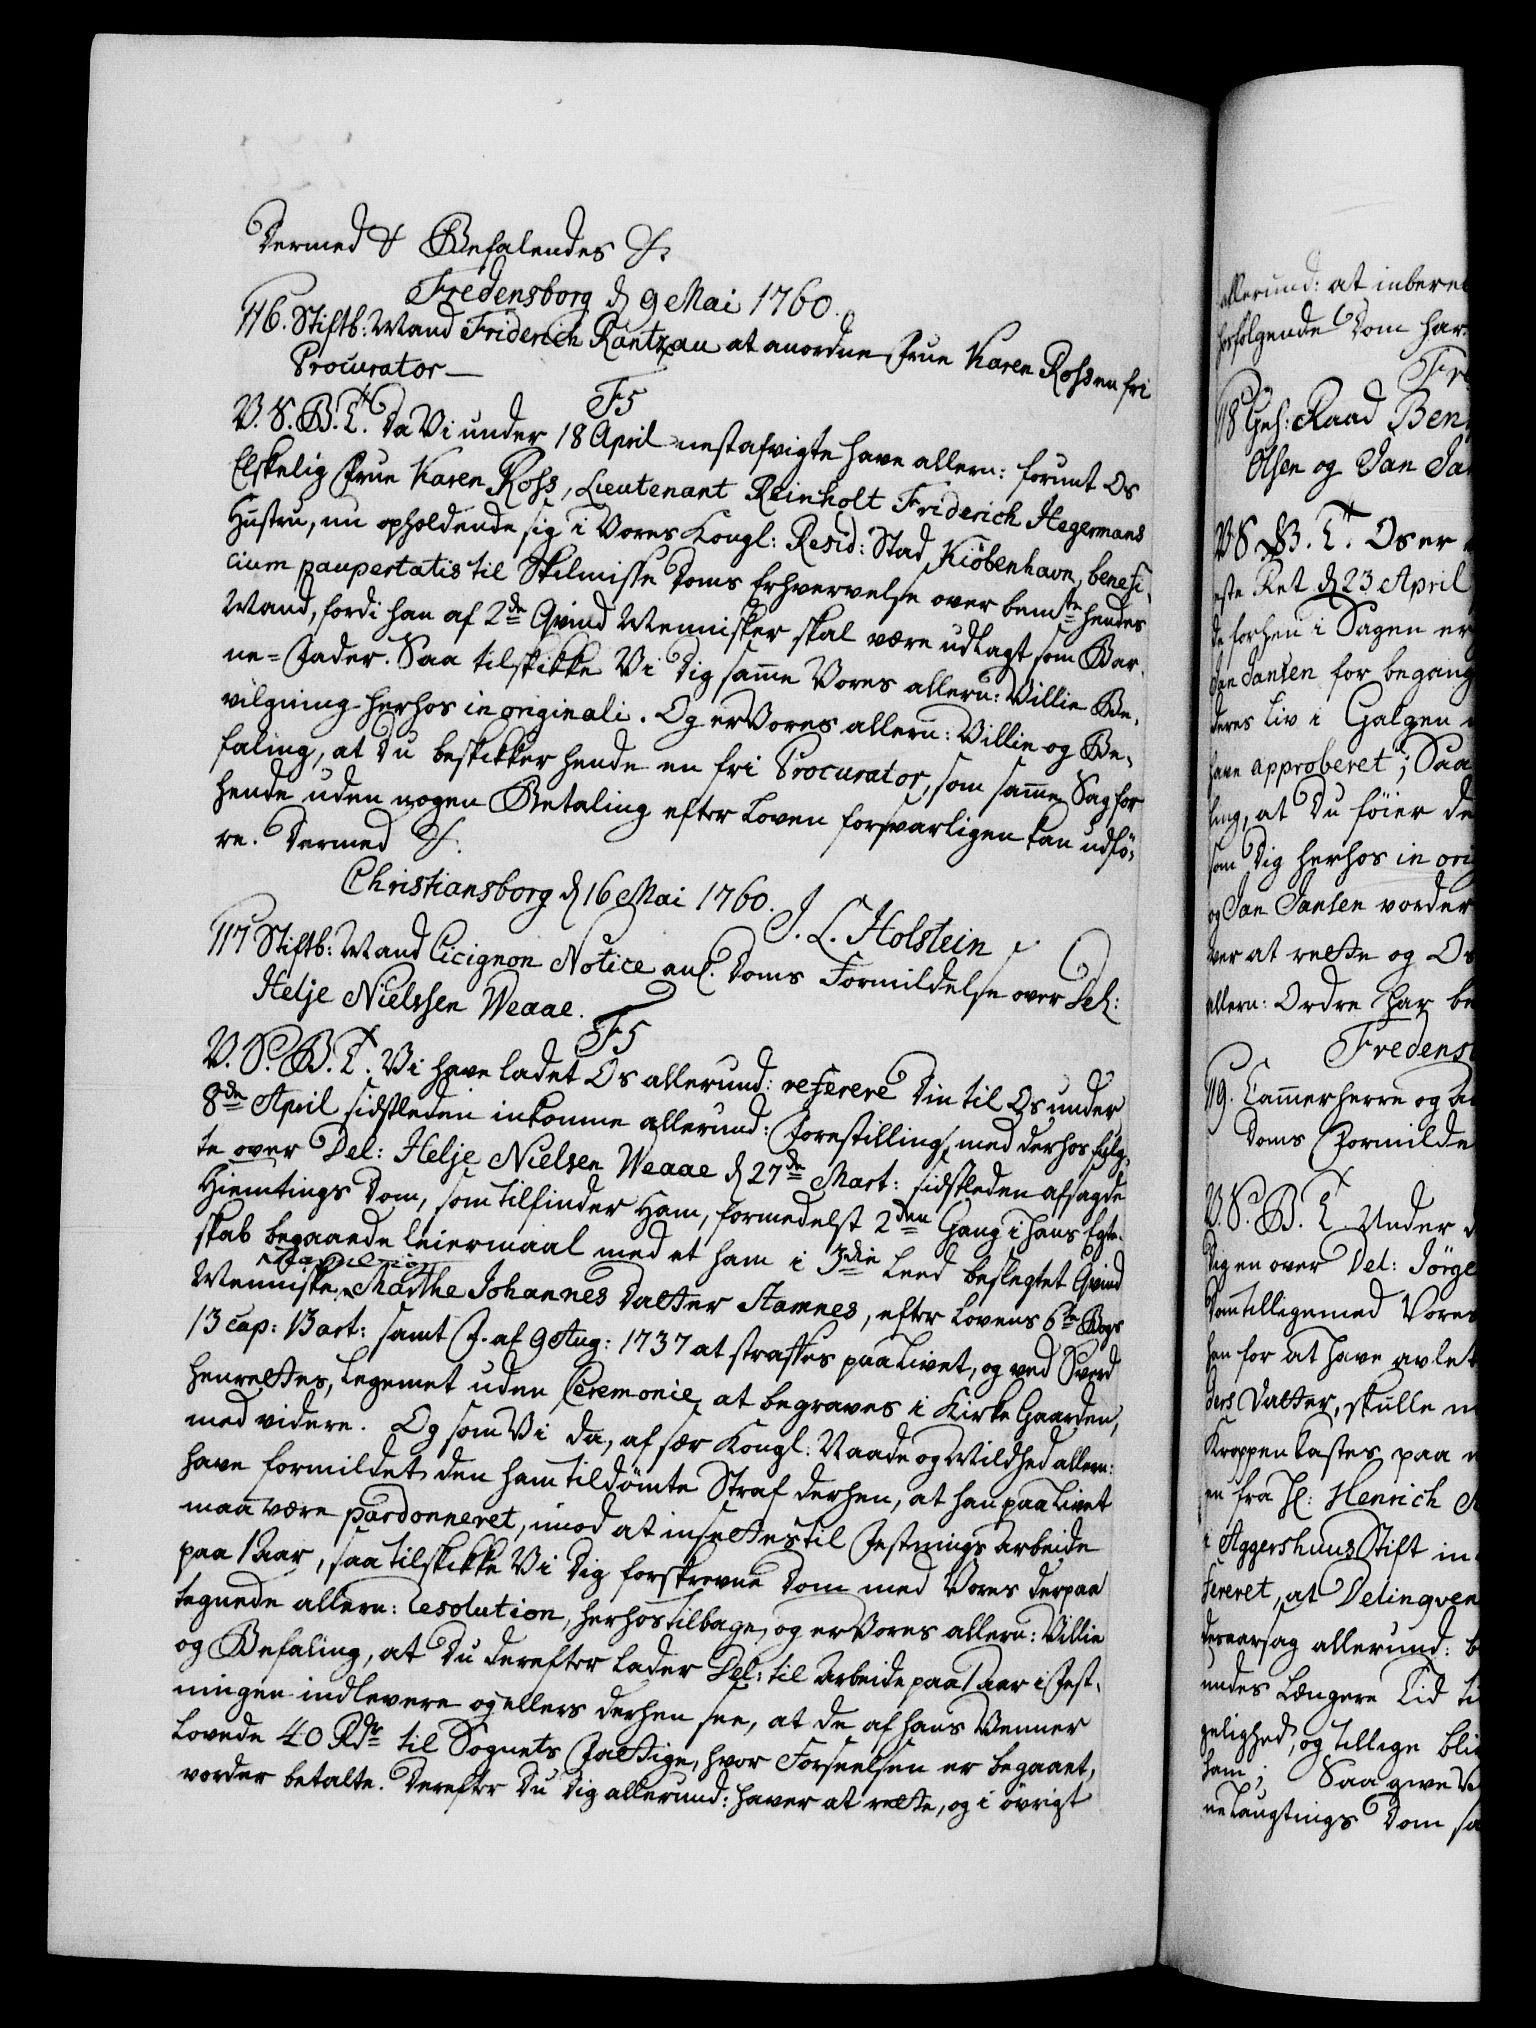 Dermed & Befalendes &.
Fredensborg d 9 Mai 1760.
116. Stiftb: Mand Friderich Rantzau at anordne Frue Karen Rohs en fri
Procurator —
F5
V. S. B. T. Da Vi under 18 April nestafvigte have allern: forunt Os
Elskelig Frue Karen Rohs, Lieutenant Reinholt Friderich Hegermans
Hustru, nu opholdende sig i Vores Kongl: Resid: Stad Kiöbenhavn, benefi-
cium paupertatis til Skilmisse Doms Erhvervelse over bemte hendes
Mand, fordi han af 2de Qvind Mennisker skal være udlagt som Bar-
ne-Fader. Saa tilskikke Vi Dig samme Vores allern: Villie Be-
vilgning herhos in originali. Og er Vores allern: Villie og Be-
faling, at Du beskikker hende en fri Procurator, som samme Sag for
hende uden nogen Betaling efter Loven forsvarligen kan udfö-
re. Dermed &.
Christiansborg d 16 Mai 1760.
J. L. Holstein
117 Stiftb: Mand Cicignon Notice anl. Doms Formildelse over Del:
Helje Nielssen Weaae.
F5
V. S. B. T. Vi have ladet Os allerund: referere Din til Os under
8de April sidstleden inkomne allerund: Forestilling, med derhos fulg-
te over Del: Helje Nielsen Weaae d 27de Mart: sidstleden afsagde
Hiemtings Dom, som tilfinder Ham, formedelst 2den Gang i hans Egte-
skab begaaede Leiermaal med et ham i 3die Leed beslegtet Qvind
Menniske, Marthe Johannes Datter Stamnes, efter Lovens 6te Bogs
13 cap: 13 art: samt F. af 9 Aug: 1737 at straffes paa Livet, og ved Sverd
henrettes, Legemet uden Ceremonie at begraves i Kirke Gaarden,
med videre. Og som Vi da, af sær Kongl: Naade og Mildhed allern:
have formildet den ham tildömte Straf derhen, at han paa Livet
maa være pardonneret, imod at insettes til Festnings Arbeide
paa 1 Aar, saa tilskikke Vi Dig forskrevne Dom med Vores derpaa
tegnede allern: Resolution, herhos tilbage, og er Vores allern: Villie
og Befaling, at Du derefter lader Del: til Arbeide paa 1 Aar i Fest-
ningen indlevere og ellers derhen see, at de af hans Venner
lovede 40 Rdr til Sognets Fattige, hvor Forseelsen er begaaet,
vorder betalte. Derefter Du Dig allerund: haver at rette, og i övrigt
allerund: at inberet
hosfolgende Dom har
Fre
118 Geh: Raad Ben
Olsen og Jan Jan
V S B. T. Os er
este Ret d 23 April
de forhen i Sagen er
Jan Jansen for begang
deres Liv i Galgen
have approberet; Saa
ling, at Du föier de
som Dig herhos in orig
og Jan Jansen vorder
ver at rette og Os
allern: Ordre har be
Fredens
119. Cammerherre og
Doms Formilde
V. S. B. T Under
Dig en over Del: Jörge
Dom tilligemed Vores
hen for at have avlet
ders Datter, skulle m
Kroppen kastes paa
en fra H: Henrich
i Aggershuus Stift in
fereret, at Delinqven
desaarsag allerund: b
undes Længere Tid ti
gelighed, og tillige bli
ham; Saa give V
ne Laugtings Dom sa